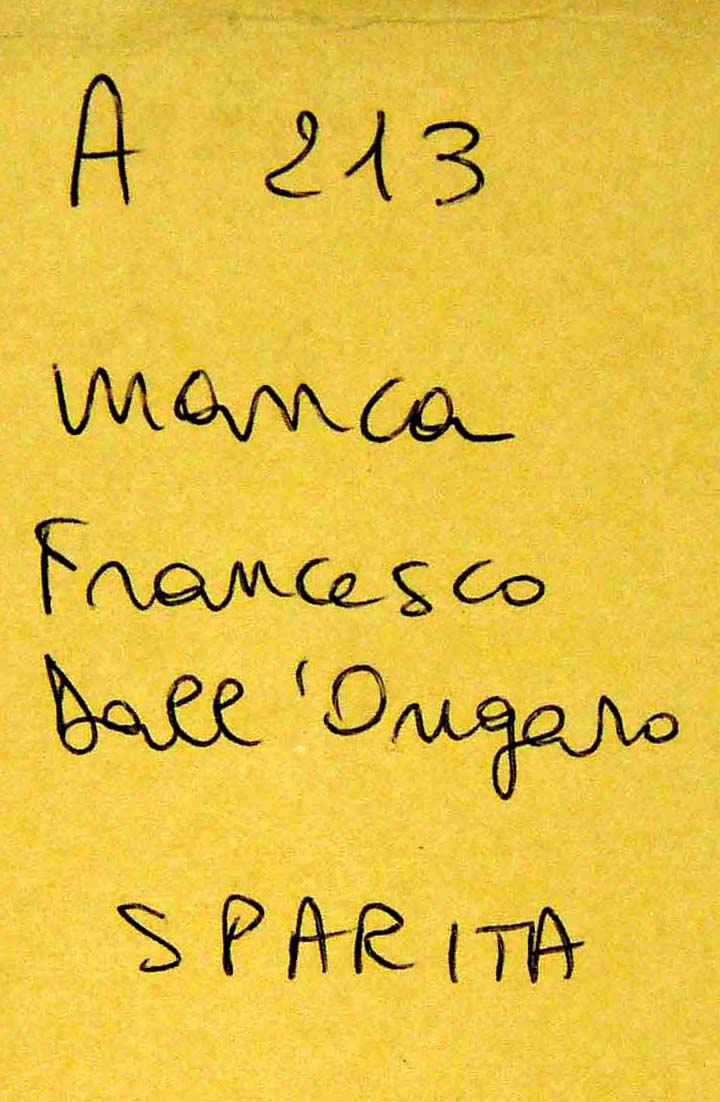 A 213
manca
Francesco
Dall'Ongaro
SPARITA